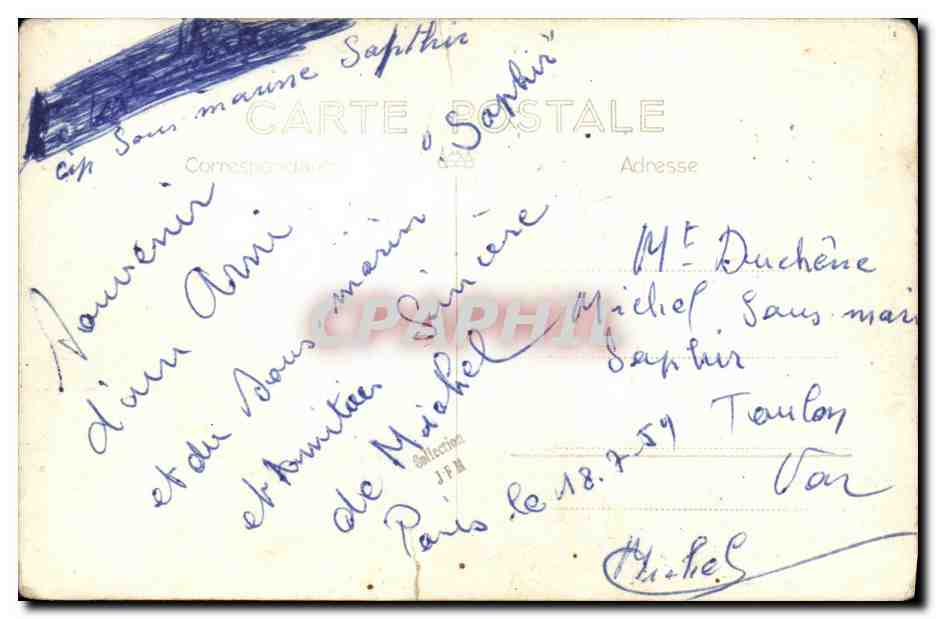 cap Sous marine Sapthir
CARTE POSTALE
Correspondance
Adresse
Souvenir
d'un Ami
et du Sous marin "Saphir"
et Amitiés Sincère
de Michel
Paris le 18.7.59
Mt Duchêne
Michel Sous marin
Saphir
Toulon
Var
Michel
CPAPHIL
Collection
JFM